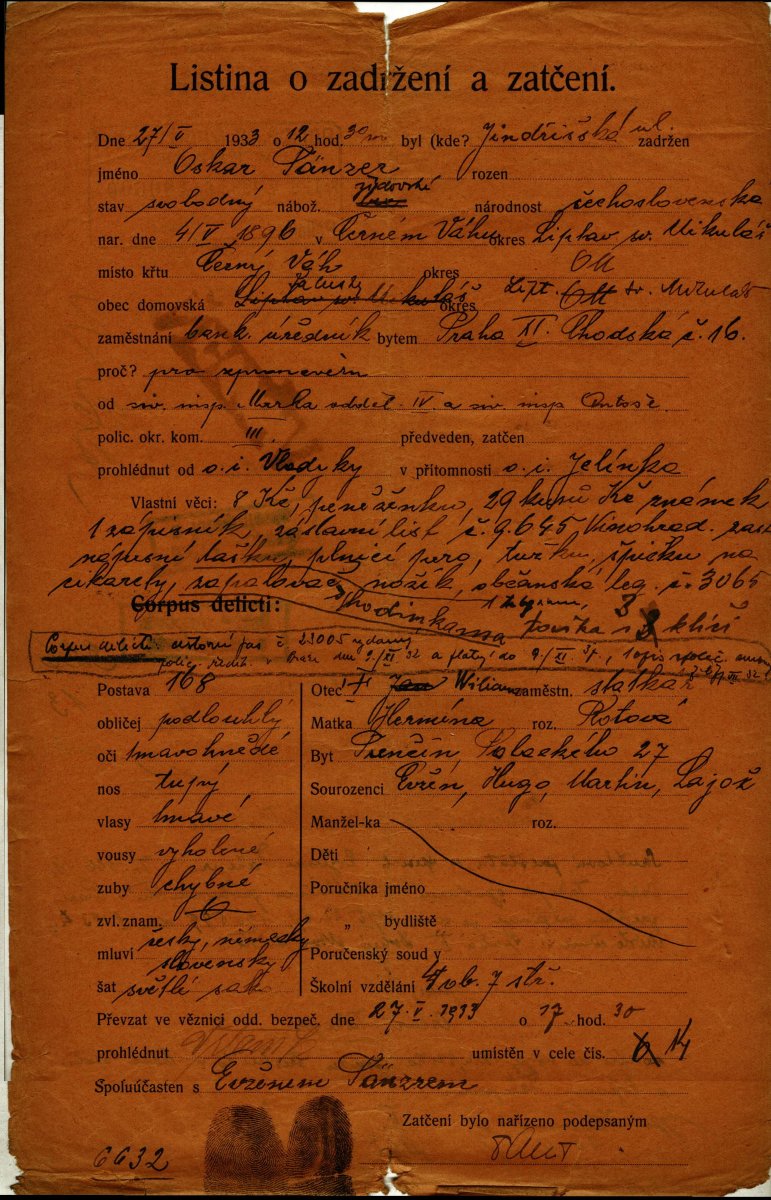 Listina o zadržení a zatčení.
Dne 27/V 1933 o 12 hod. 30 min byl (kde? Jindřišská ul. zadržen
jméno Oskar Tänzer rozen
stav svobodný nábož. židovské národnost čechoslovenská
nar. dne 4/V 1896 v Černém Váhu okres Liptav sv. Mikuláš
místo křtu Černý Váh okres
obec domovská Liptav sv. Mikuláš okres Lipt. sv. Mikuláš
zaměstnání bank. úředník bytem Praha XI. Chodská č. 16.
proč? pro zpronevěru
od insp. Marka odděl. IV a insp
polic. okr. kom. III. předveden, zatčen
prohlédnut od o. i. Vladyky v přítomnosti o. i. Jelínka
Vlastní věci: 8 Kč, peněženku, 29 kusů Kč známek
1 zápisník, zástavní list č. 9.645 Vinohrad. zast.
náprsní tašku, plnicí pero, tužku, špičku na
cikarety, zapalovač, nožík, občanská leg. č. 3065
Corpus delicti: hodinkama, 3 klíči
Corpus delicti: cestovní pas č. 23005 vydaný
polic. ředit. v Praze dne 9./XI 32 a platný do 9./XI
Postava 168
obličej podlouhlý
oči tmavohnědé
nos tupý
vlasy tmavé
vousy vyholené
zuby chybné
zvl. znam.
mluví česky, německy
slovensky
šat světlé sako
Otec † Jan Wiliam zaměstn. statkář
Matka Hermína roz. Rotová
Byt Trenčín, Palackého 27
Sourozenci Evžen, Hugo, Martin, Lajož
Manžel-ka roz.
Děti
Poručníka jméno
„ bydliště
Poručenský soud v
Školní vzdělání 4 ob. 7 stř.
Převzat ve věznici odd. bezpeč. dne 27. V. 1933 o 17 hod. 30
prohlédnut umístěn v cele čís. 14
Spoluúčasten s Evženem Tänzrem
Zatčení bylo nařízeno podepsaným
6632